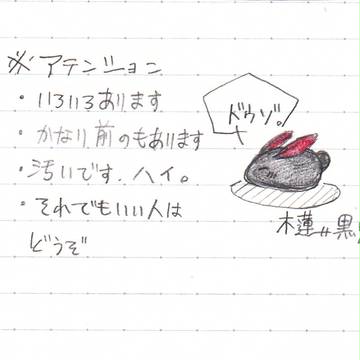 ※アテンション
・いろいろあります
・かなり前のもあります
・汚いです.ハイ。
・それでもいい人は
どうぞ
ドウゾ。
木蓮#黒